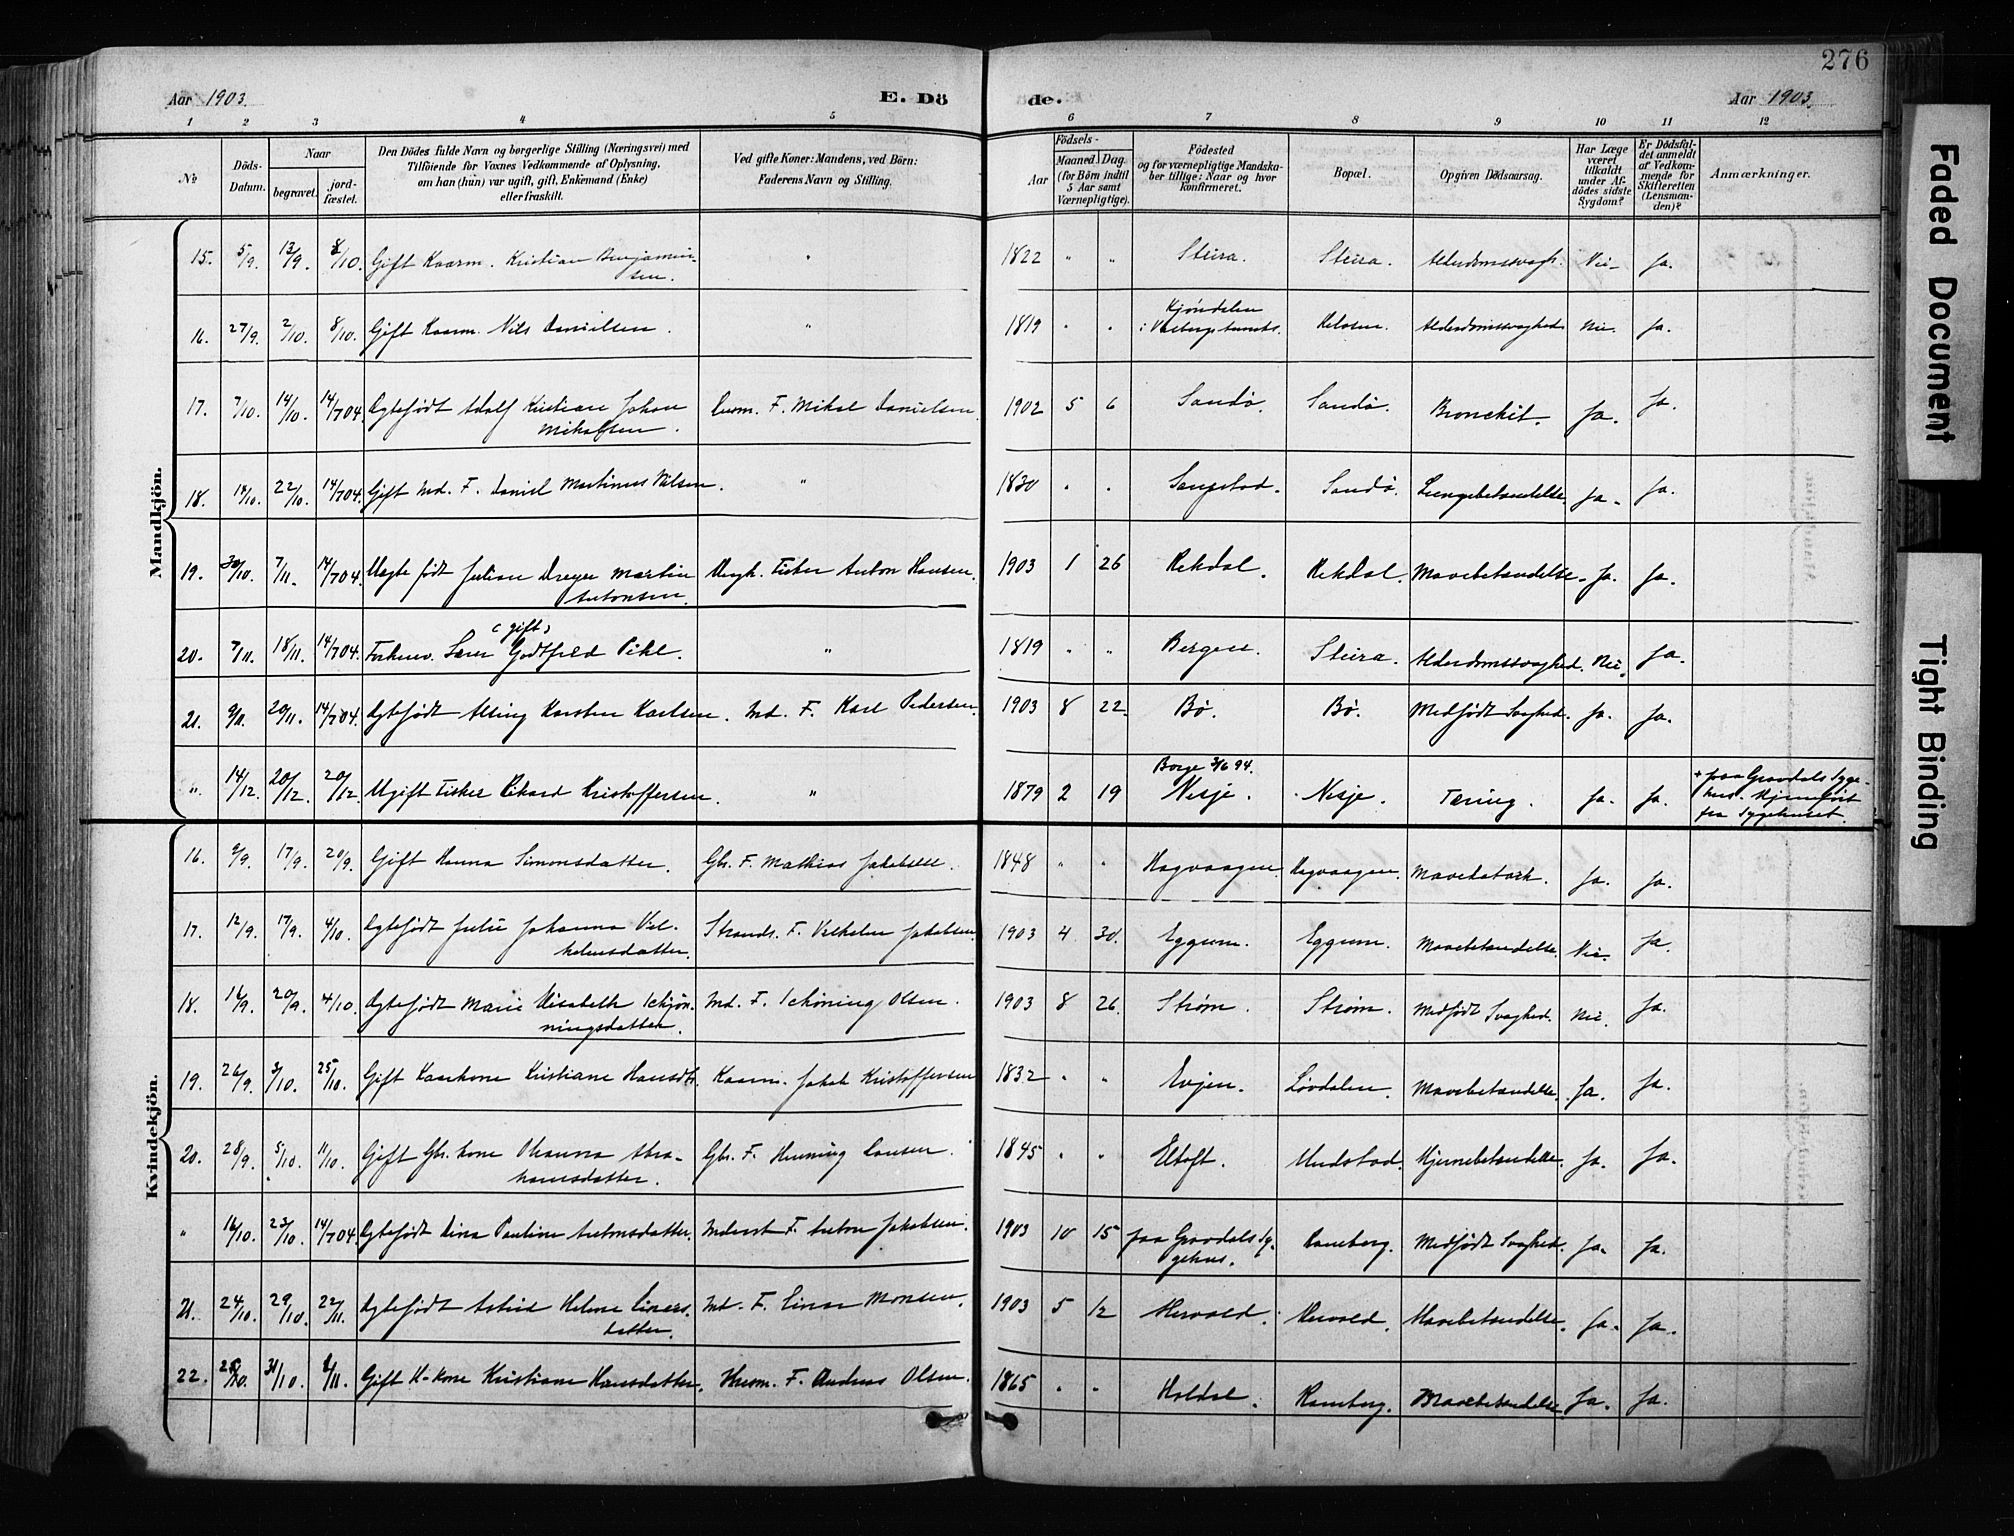 276
Aar 1903.
E. Dö
de.
Aar 1903.
1 2 3 4 5 6 7 8 9 10 11 12
№
Döds-
Datum.
Naar
begravet.
jord-
fæstet.
Den Dödes fulde Navn og borgerlige Stilling (Næringsvei) med
Tilföiende for Voxnes Vedkommende af Oplysning,
om han (hun) var ugift, gift, Enkemand (Enke)
eller fraskilt.
Ved gifte Koner: Mandens, ved Börn:
Faderens Navn og Stilling.
Aar
Födsels-
Maaned. Dag.
(for Börn indtil
5 Aar samt
Værnepligtige).
Födested
og for værnepligtige Mandska-
ber tillige: Naar og hvor
konfirmeret.
Bopæl.
Opgiven Dödsaarsag.
Har Læge
været
tilkaldt
under Af-
dödes sidste
Sygdom?
Er Dödsfal-
det anmeldt
af Vedkom-
mende for
Skifteretten
(Lensman-
den)?
Anmærkninger.
Mandkjön.
15. 5/9. 13/9. 8/10. Gift Kaarm. Kristian Benjamin-
sen. " 1822 " " Steira. Steira. Alderdomssvagh. Nei. Ja.
16. 27/9. 2/10. 8/10. Gift Kaarm. Nils Danielsen. " 1819 " " Kjøndalen
Nei. Ja. Alderdomssvaghed
17. 7/10. 14/10. 14/7 04. Ægtefødt Adolf Kristian Johan
Mikalsen. F. Mikal Danielsen. 1902 5 6 Sandø. Sandø. Bronchit. Ja. Ja.
18. 14/10. 22/10. 14/7 04. Gift Ind. F. Daniel Martinus Nilsen. " 1830 " " Saupstad. Sandø. Lungebetændelse. Ja. Ja.
19. 30/10. 7/11. 14/7 04. Uægte født Julian Dreyer Martin
Antonsen. Ungk. Fisker Anton Hansen. 1903 1 26 Rekdal. Rekdal. Mavebetændelse. Ja. Ja.
(gift)
20. 7/11. 18/11. 14/7 04. Søren Godtfred Pihl. " 1819 " " Bergen. Steira. Alderdomssvaghed. Nei. Ja.
21. 9/11. 20/11. 14/7 04. Ægtefødt Alting Karsten Karlsen. Ind. F. Karl Pedersen. 1903 8 22. Bø. Bø. Medfødt Svaghed. Ja. Ja.
" 14/12. 20/12. 20/12. Ugift Fisker Rikard Kristoffersen. " 1879 2 19 Borge 3/6 94.
Nesje. Nesje. Tæring. Ja. Ja. + paa Gravdals Syge-
hus. Hjemført
fra Sygehuset.
Kvindekjön.
16. 9/9. 17/9. 20/9. Gift Hanna Simonsdatter. Gbr. F. Mathias Jakobsen. 1848 " " Hagvaagen. Hagvaagen. Mavekatarh. Ja. Ja.
17. 12/9. 17/9. 4/10. Ægtefødt Julie Johanna Vil-
helmsdatter. Strands. F. Vilhelm Jakobsen. 1903 4 30. Eggum. Eggum. Mavebetændelse. Nei. Ja.
18. 16/9. 20/9. 4/10. Ægtefødt Marie Elisabeth Schjøn-
ningsdatter. Ind. F. Schøning Olsen. 1903 8 26. Strøm. Strøm. Medfødt Svaghed. Nei. Ja.
19. 26/9. 3/10. 25/10. Gift Kaarkone Kristiane Hansdtr. Kaarm. Jakob Kristoffersen 1832 " " Evjen. Løvdalen. Mavebetændelse. Ja. Ja.
20. 28/9. 5/10. 11/10. Gift Gbr.kone Johanna Abra-
hamsdatter. Gbr. F. Henning 1845 " " Eltoft. Undstad. Hjernebetændelse. Ja. Ja.
" 16/10. 23/10. 14/7 04. Ægtefødt Lina Pauline Antonsdatter. Inderst F. Anton Jakobsen. 1903 10 15 paa Gravdals Sy-
gehus. Ramberg. Medfødt Svaghed. Ja. Ja.
21. 24/10. 29/10. 22/11. Ægtefødt Astrid Helene Einars-
datter. Ind. F. Einar Monsen. 1903 5 12 Hervold. Hervold. Mavebetændelse. Ja. Ja.
22. 31/10. Gift H-kone Kristiane Hansdatter. Husm. F. Andreas Olsen. 1865 " " Holdal. Ramberg. Mavebetændelse. Ja. Ja.
Faded Document
Tight Binding